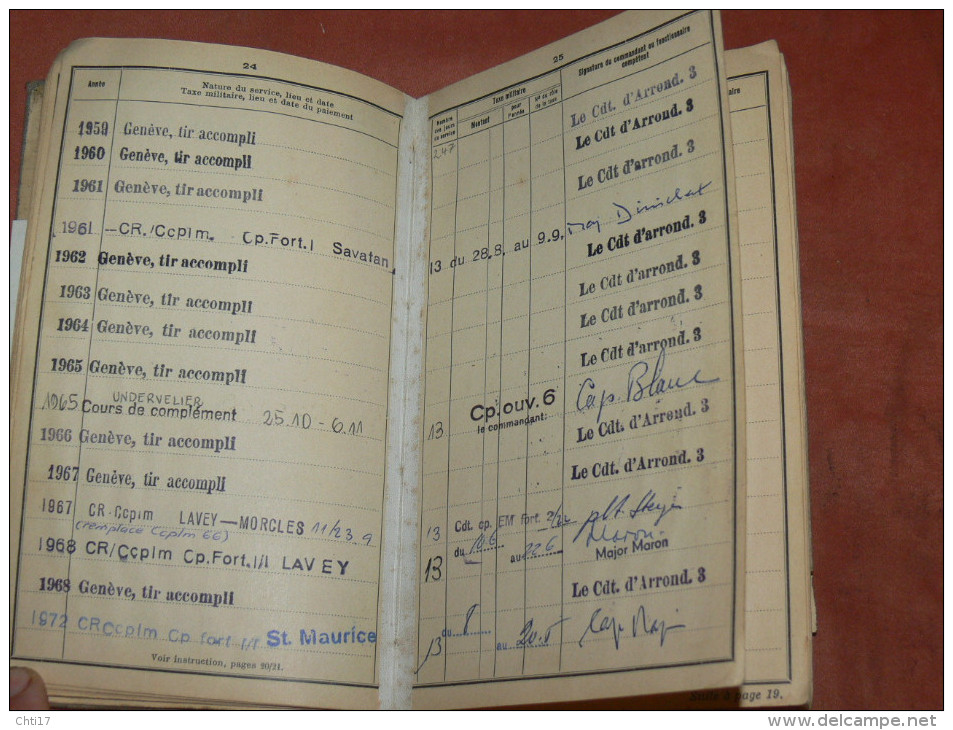 24
Année
Nature du service, lieu et date
Taxe militaire, lieu et date du paiement
1959 Genève, tir accompli
1960 Genève, tir accompli
1961 Genève, tir accompli
1961 - CR./Ccplm. Cp.Fort.I Savatan
1962 Genève, tir accompli
1963 Genève, tir accompli
1964 Genève, tir accompli
1965 Genève, tir accompli
UNDERVELIER
1965 Cours de complément 25.10 - 6.11
1966 Genève, tir accompli
1967 Genève, tir accompli
1967 CR-Ccplm LAVEY-MORCLES 11/23 9
(remplace Ccplm 66)
1968 CR/Ccplm Cp.Fort.I/I LAVEY
1968 Genève, tir accompli
1972 CRCcplm Cp fort I/I St. Maurice
Voir instruction, pages 20/21.
25
Taxe militaire
Signature du commandant ou fonctionnaire
compétent
Nombre
des jours
de service
Montant
pour
l'année
de la taxe
247
Le Cdt. d'Arrond. 3
Le Cdt d'Arrond. 3
Le Cdt d'Arrond. 3
13 du 28.8. au 9.9. Maj
Le Cdt d'arrond. 3
Le Cdt d'arrond. 3
Le Cdt d'arrond. 3
Le Cdt d'arrond. 3
13 Cp. ouv. 6 Cap. Blanc
le commandant:
Le Cdt. d'Arrond. 3
Le Cdt. d'Arrond. 3
13 Cdt. cp. EM fort. 2/22 plt
13 du 10.6 au 22.6
Major Maron
Le Cdt. d'Arrond. 3
13 du 8 au 20.5 Cap
naire
Suite à page 19.
Chti17
www.delcampe.net